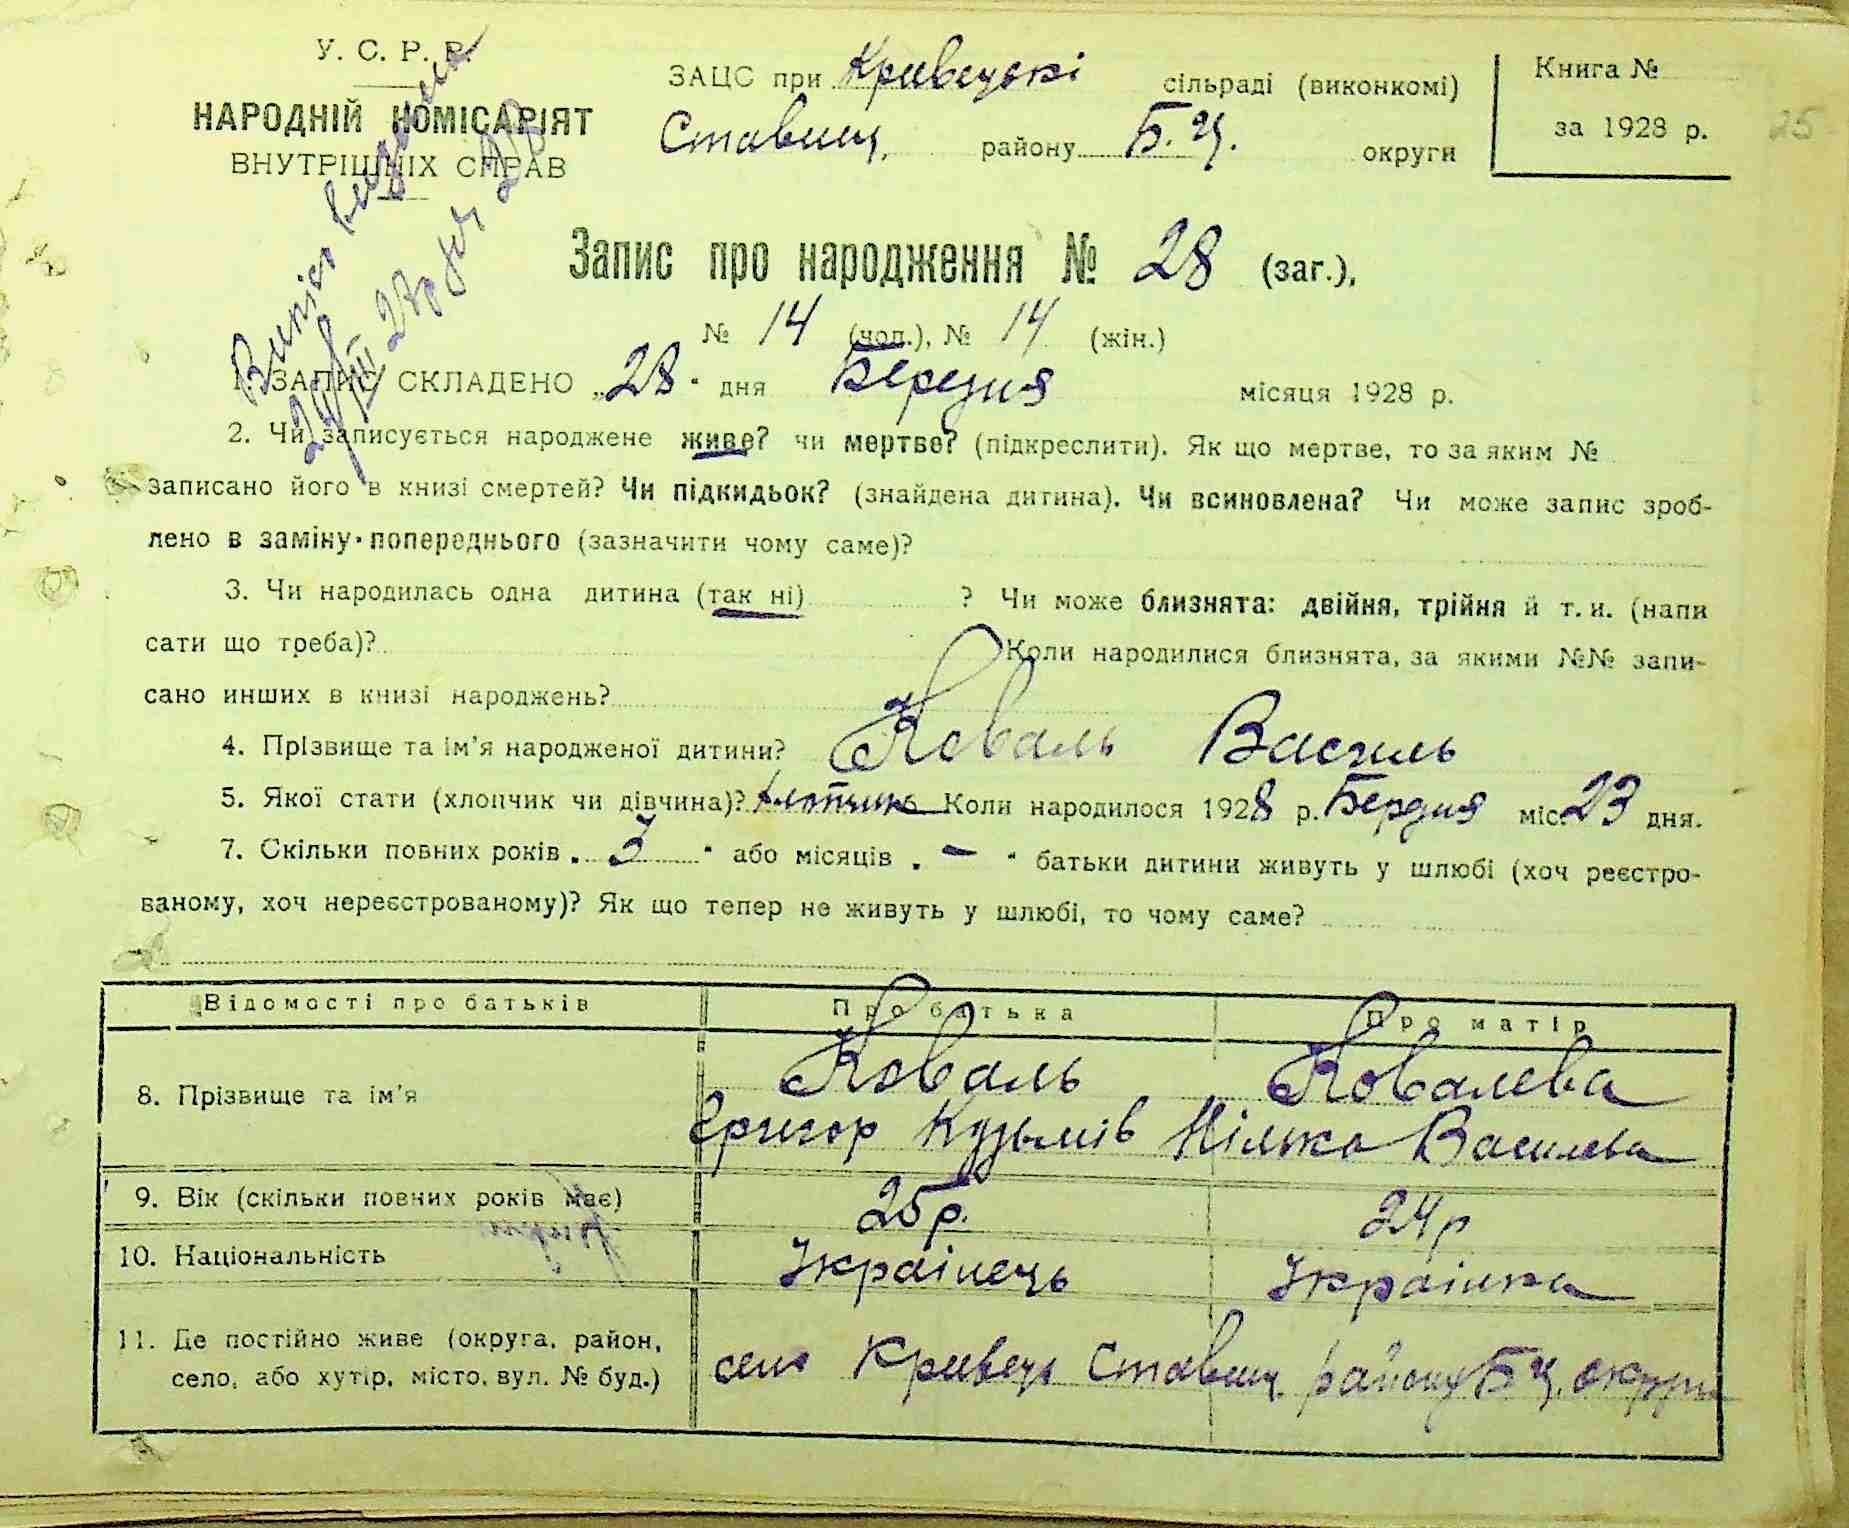 У. С. Р. Р.
НАРОДНІЙ КОМІСАРІЯТ
ВНУТРІШНІХ СПРАВ
ЗАЦС при Кривецькі сільраді (виконкомі)
Ставищ. району Б.Ц. округи
Книга №
за 1928 р.
25
Запис про народження № 28 (заг.),
№ 14 (чол.), № 14 (жін.)
1. ЗАПИС СКЛАДЕНО „28" дня Березня місяця 1928 р.
2. Чи записується народжене живе? чи мертве? (підкреслити). Як що мертве, то за яким №
записано його в книзі смертей? Чи підкидьок? (знайдена дитина). Чи всиновлена? Чи може запис зроб-
лено в заміну попереднього (зазначити чому саме)?
3. Чи народилась одна дитина (так ні) ? Чи може близнята: двійня, трійня й т. и. (напи
сати що треба)? Коли народилися близнята, за якими №№ запи-
сано инших в книзі народжень?
4. Прізвище та ім'я народженої дитини? Коваль Василь
5. Якої стати (хлопчик чи дівчина)? хлопчик Коли народилося 1928 р. Бердня міс. 23 дня.
7. Скільки повних років „ 3 " або місяців „ — " батьки дитини живуть у шлюбі (хоч реєстро-
ваному, хоч нереєстрованому)? Як що тепер не живуть у шлюбі, то чому саме?
Відомості про батьків Про батька Про матір
8. Прізвище та ім'я Коваль Ковалева
Григор Кузьмів Василева
9. Вік (скільки повних років має) 25 р. 24 р
10. Національність Українець Українка
11. Де постійно живе (округа, район,
село, або хутір, місто, вул. № буд.) село Кривець Ставищ. району Б Ц. округи
Випис видано